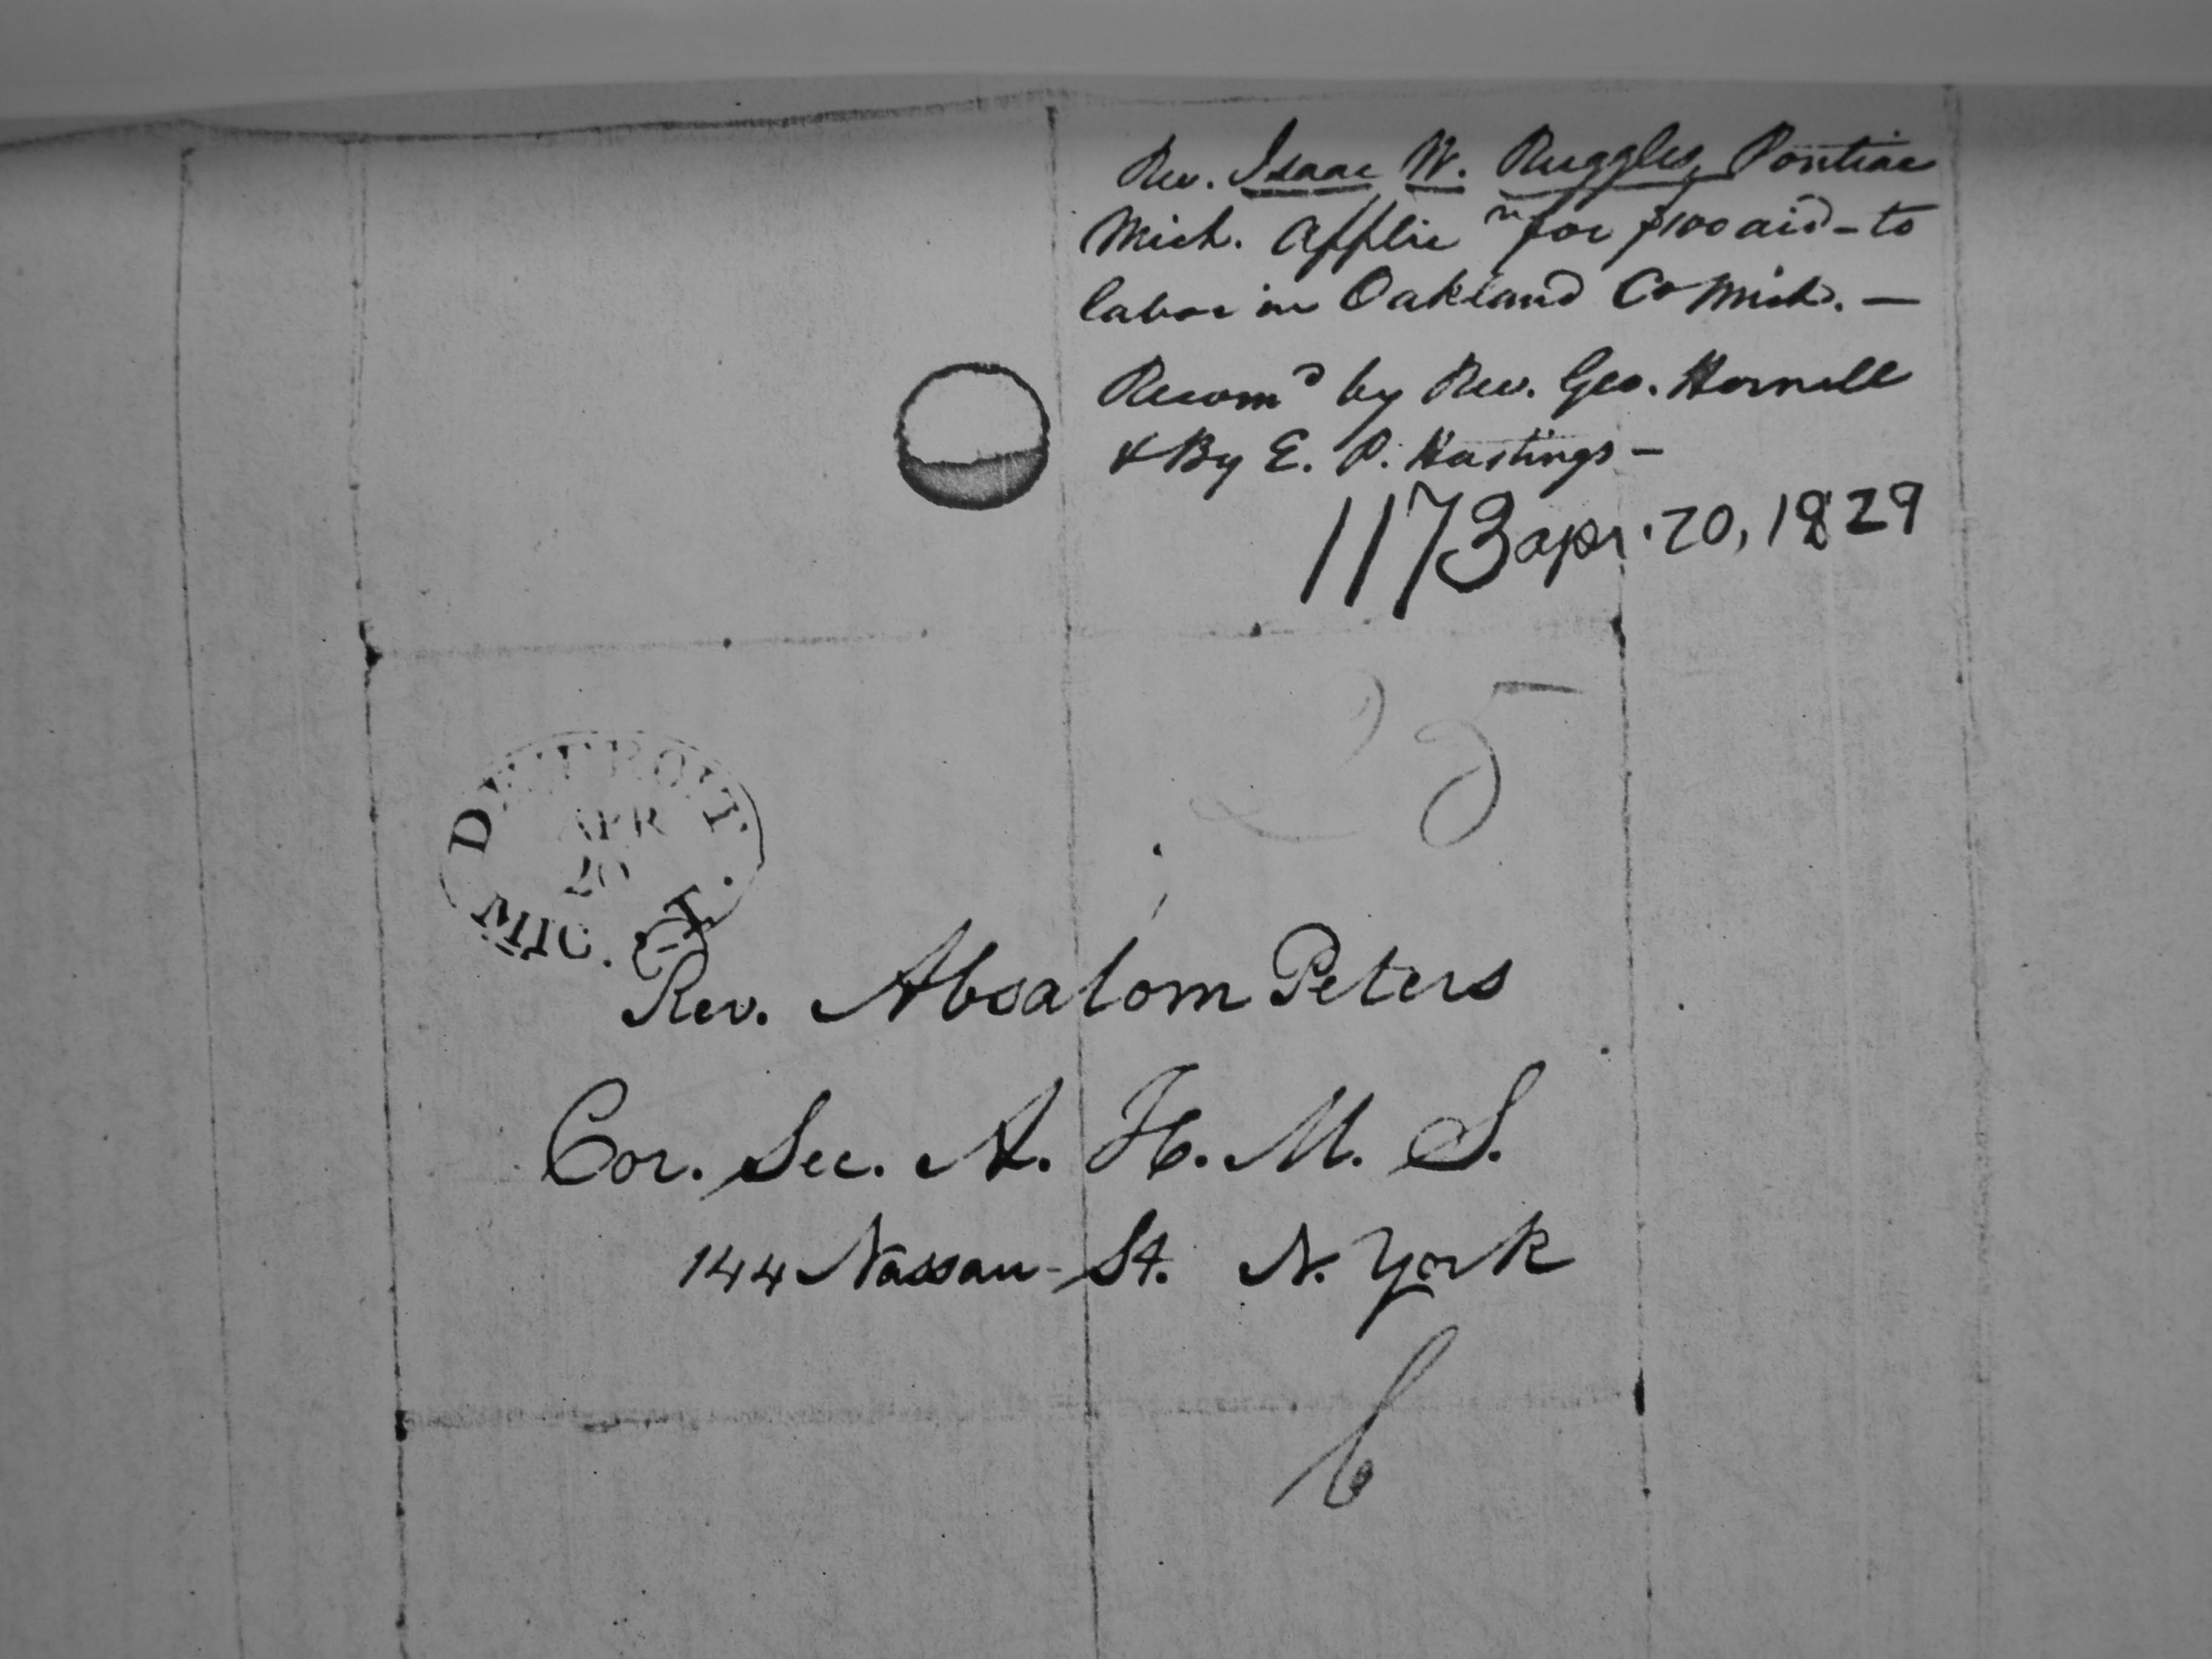 Rev. Isaac W. Ruggles, Pontiac
Mich. Applicn for $100 aid - to
labor in Oakland Co Mich. —
Recomd by Rev. Geo. Hornell
& By E. P. Hastings —
1173 apr. 20, 1829
25
DETROIT
APR
20
MIC. T.
Rev. Absalom Peters
Cor. Sec. A. H. M. S.
144 Nassau - St. N. York